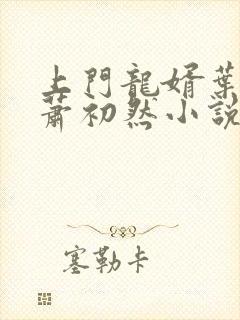 上門龍婿葉
蕭初然小說
塞勒卡